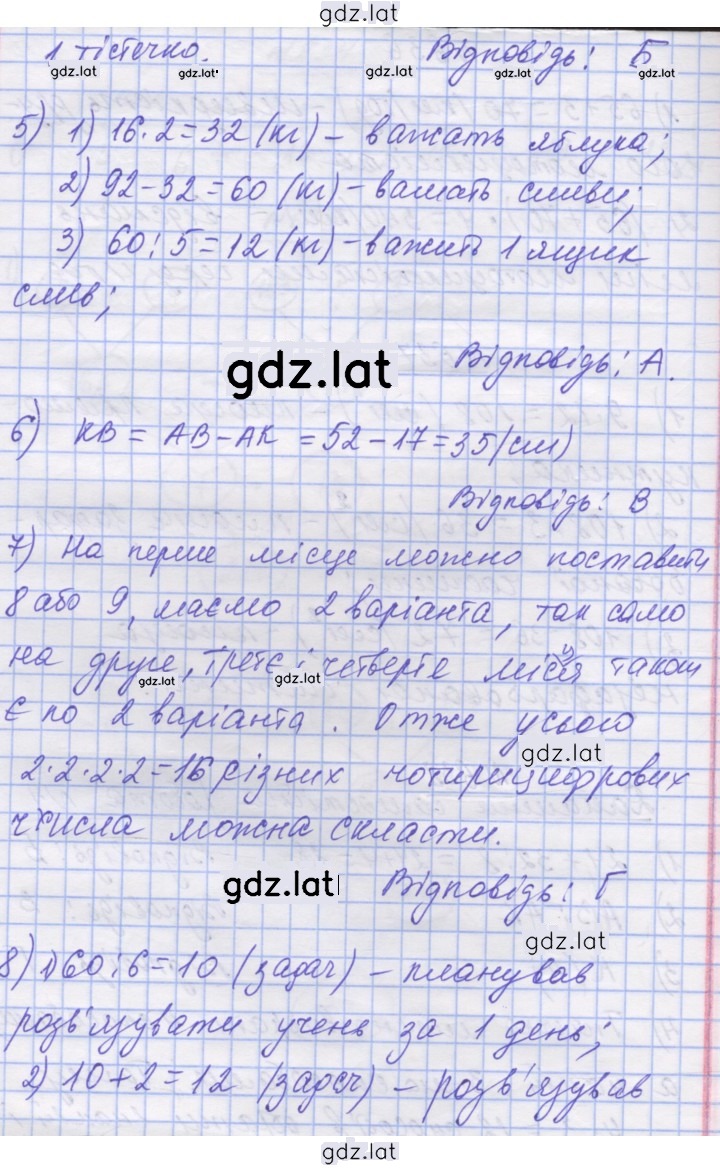 gdz.lat
1 тістечко. Відповідь: Б
gdz.lat gdz.lat gdz.lat gdz.lat
5) 1) 16·2=32 (кг) – важать яблука;
2) 92-32=60 (кг) – важать сливи;
3) 60:5=12 (кг) – важить 1 ящик
слив;
gdz.lat Відповідь: А.
6) KB = AB-AK = 52-17=35(см)
Відповідь: В
7) На перше місце можно поставити
8 або 9, маємо 2 варіанта, так само
на друге, третє і четверте місця також
gdz.lat gdz.lat
є по 2 варіанта. Отже усього
gdz.lat
2·2·2·2=16 різних чотирицифрових
числа можна скласти.
gdz.lat Відповідь: Г
gdz.lat
8) 1) 60:6=10 (задач) – планував
розв'язувати учень за 1 день;
2) 10+2=12 (задач) – розв'язував
gdz.lat